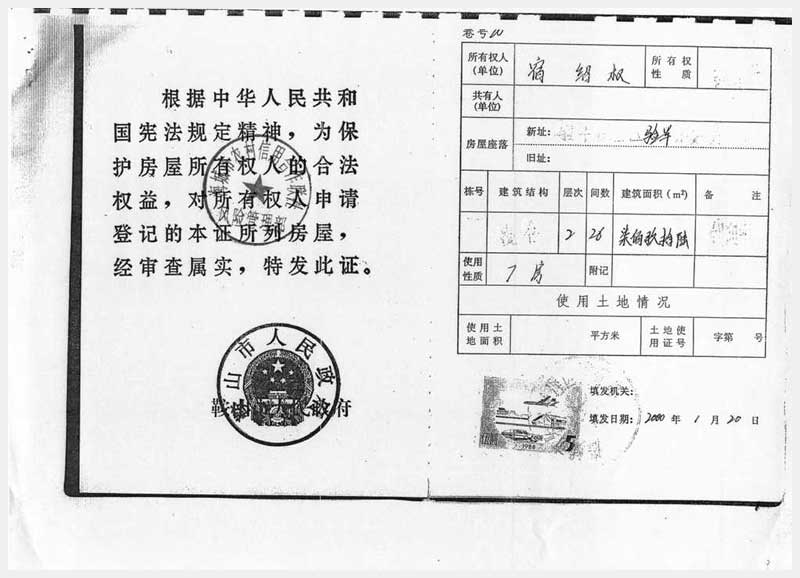 根据中华人民共和
国宪法规定精神，为保
护房屋所有权人的合法
权益，对所有权人申请
登记的本证所列房屋，
经审查属实，特发此证。
农村信用合作
风险管理部
山市人民政
鞍山市人民政府
卷号
所有权人
(单位)
宿绍权
所有权
性质
共有人
(单位)
房屋座落
新址：
旧址：
栋号 建筑结构 层次 间数 建筑面积(m²) 备注
2 26 柒佰玖拾陆
使用
性质
厂房
附记
使用土地情况
使用土
地面积
平方米
土地使
用证号
字第 号
填发机关：
填发日期：2000年1月20日
5
1988